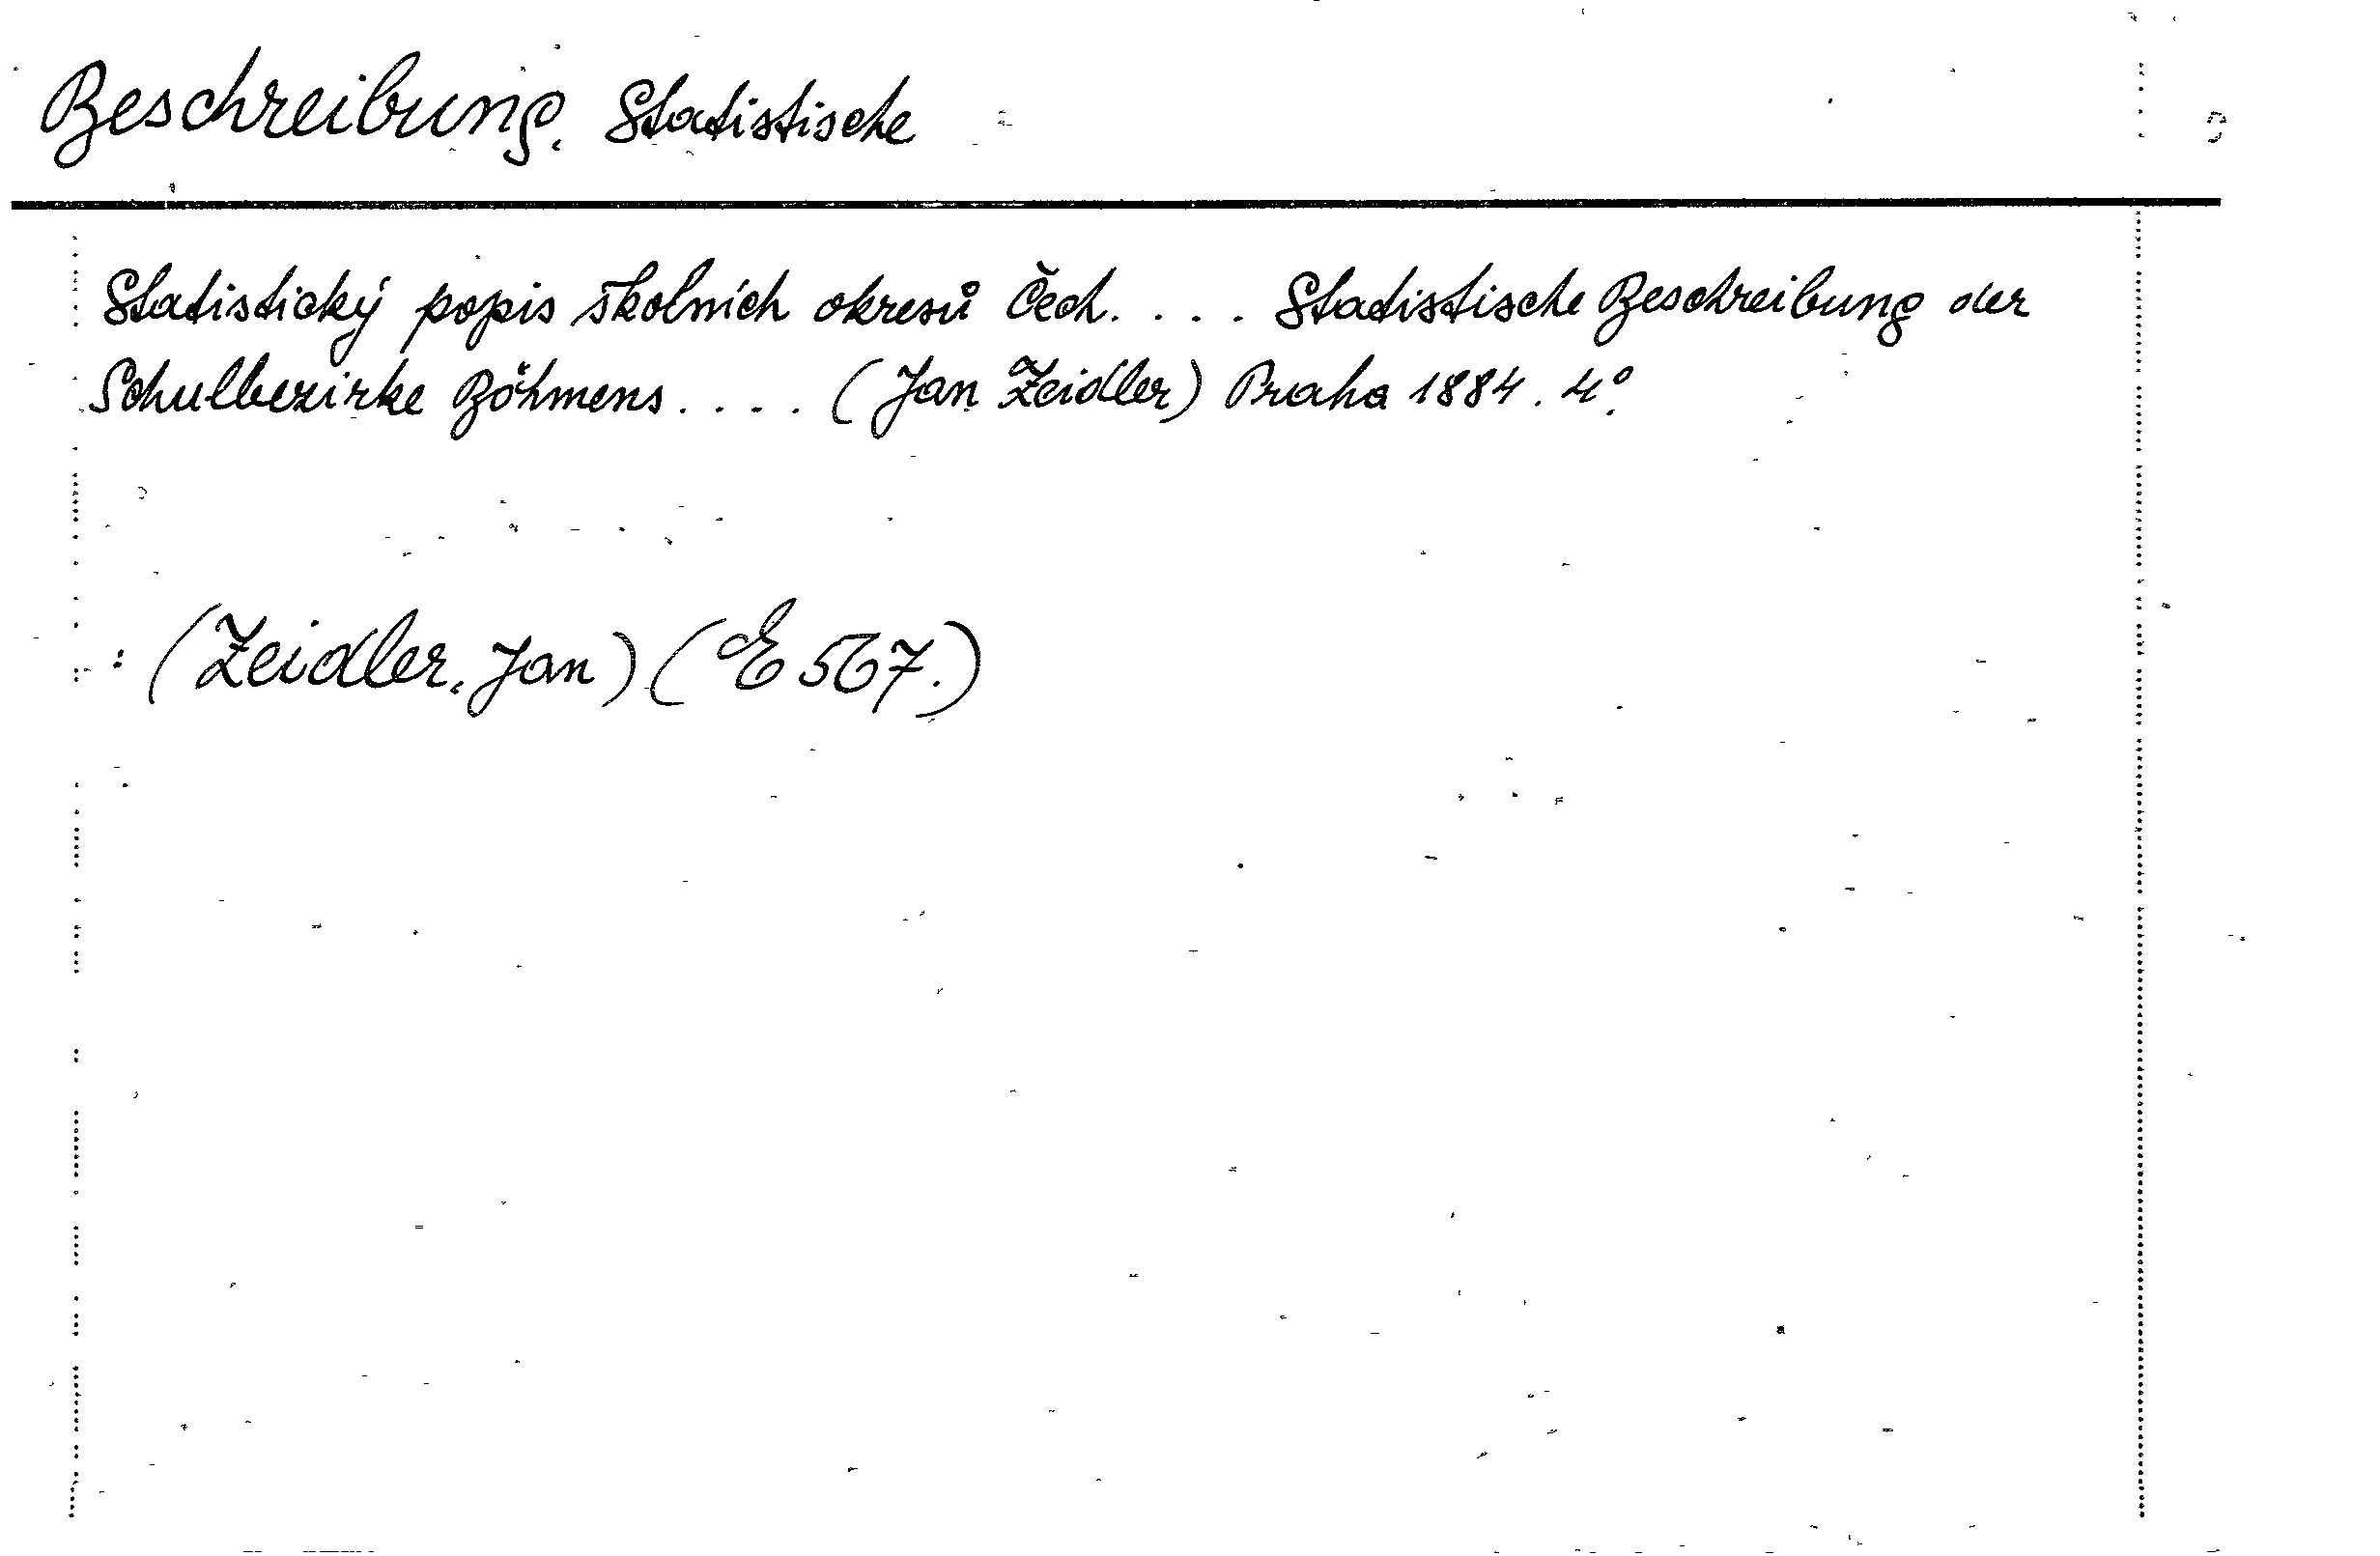 Beschreibung, Statistische
Statistický popis školních okresů Čech.... Statistische Beschreibung der
Schulbezirke Böhmens.... (Jan Zeidler) Praha 1884. 4°.
(Zeidler, Jan) (E 567.)